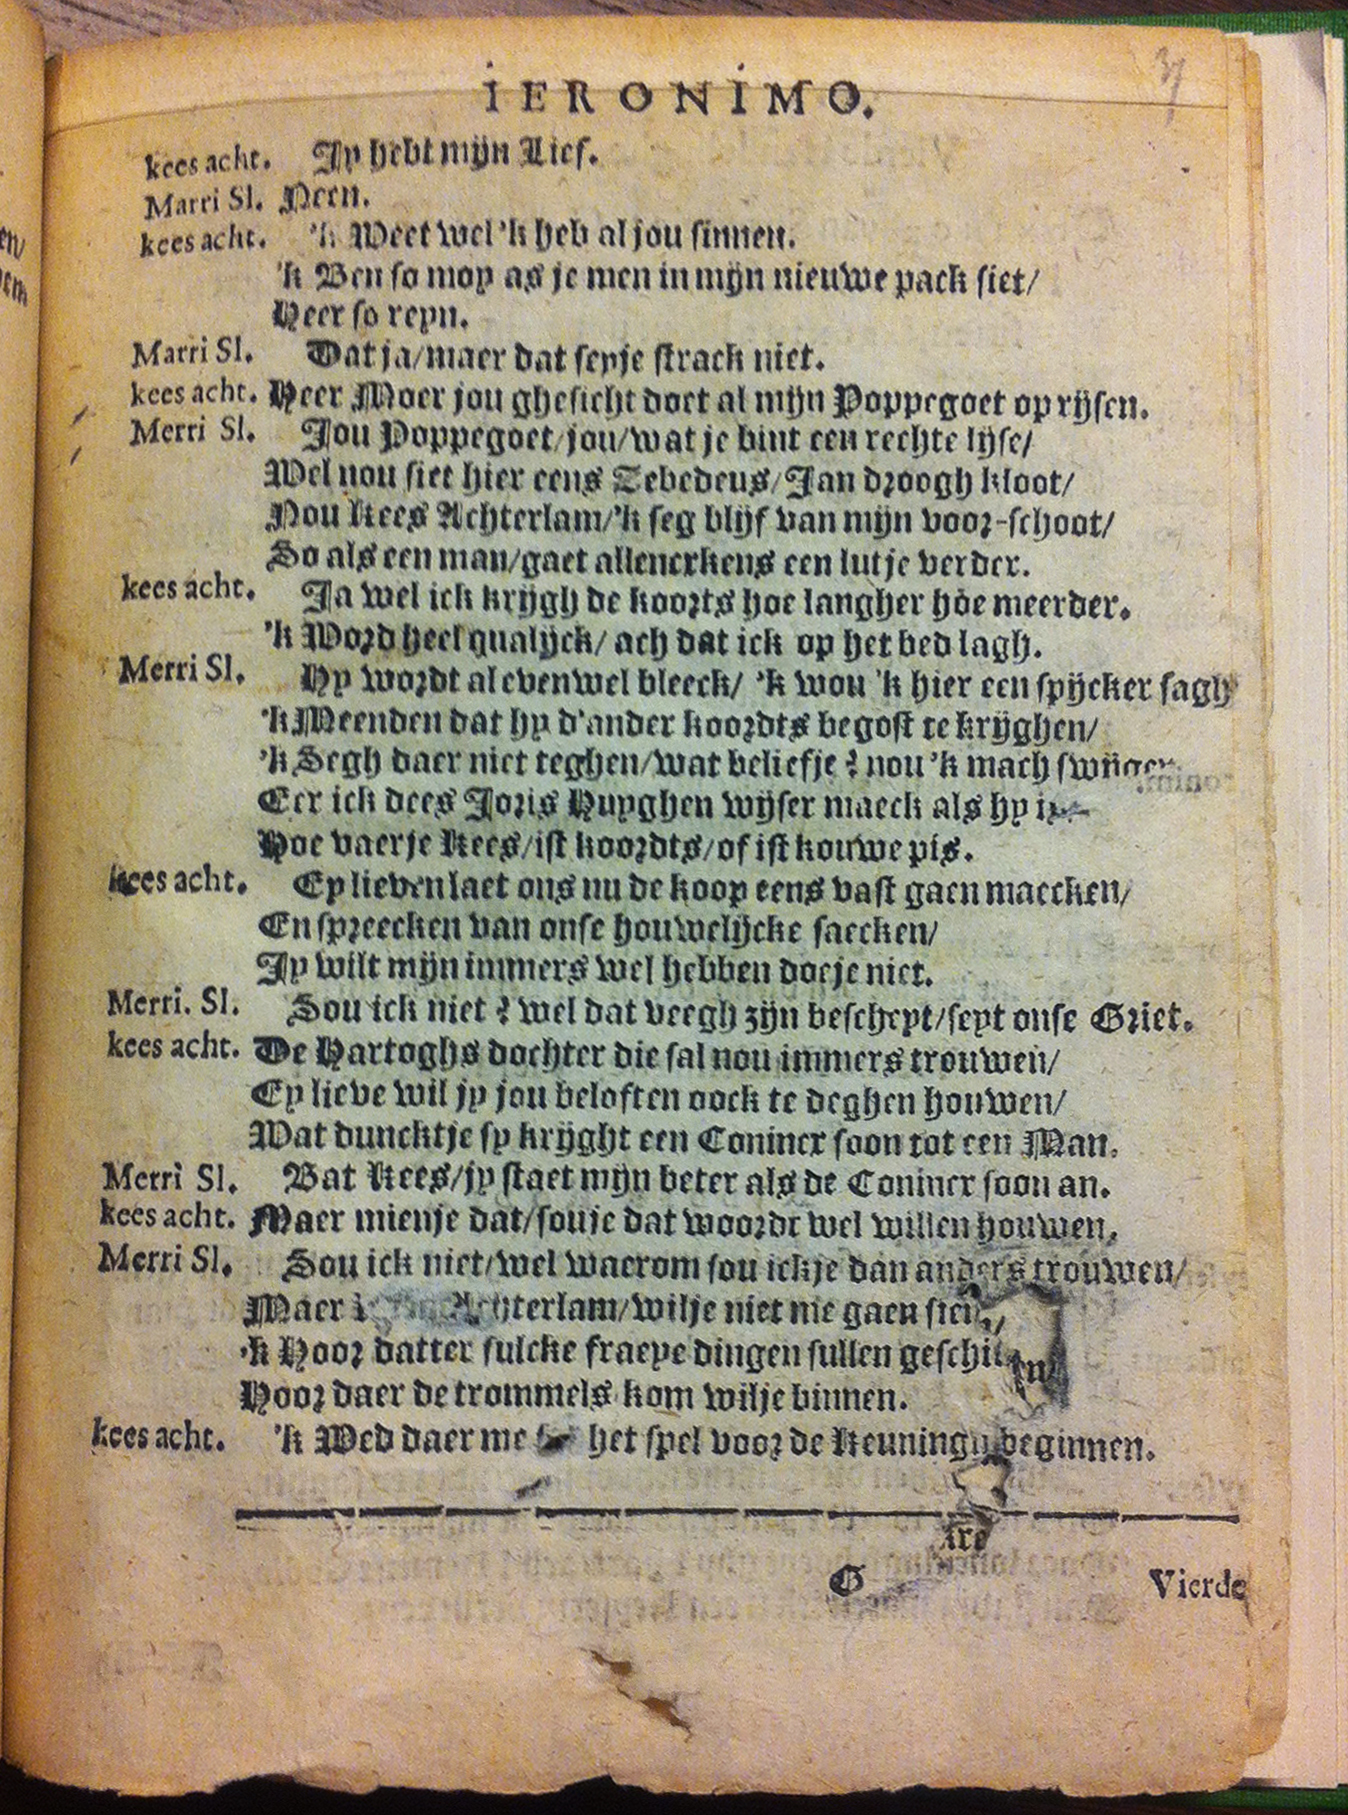 IERONIMO.
37
kees acht. Jy hebt mijn Lief.
Marri Sl. Neen.
kees acht. 'k Weet wel 'k heb al jou sinnen.
'k Ben so moy as je men in mijn nieuwe pack siet/
Heer so reyn.
Marri Sl. Dat ja/maer dat seyje strack niet.
kees acht. Heer Moer jou ghesicht doet al mijn Poppegoet op rijsen.
Merri Sl. Jou Poppegoet/jou/wat je bint een rechte lijse/
Wel nou siet hier eens Zebedeus/Jan droogh kloot/
Nou Kees Achterlam/'k seg blijf van mijn voor-schoot/
So als een man/gaet allenerkens een lutje verder.
kees acht. Ja wel ick krijgh de koorts hoe langher hoe meerder.
'k Word heel qualijck/ ach dat ick op het bed lagh.
Merri Sl. Hy wordt al evenwel bleeck/ 'k wou 'k hier een spijcker sagh
'k Meenden dat hy d'ander koordts begost te krijghen/
'k Segh daer niet teghen/wat beliefje? nou 'k mach
Eer ick dees Joris Huyghen wijser maeck als hy
Hoe vaerje Kees/ist koordts/of ist kouwe pis.
kees acht. Ey lieven laet ons nu de koop eens vast gaen maecken/
En spreecken van onse houwelijcke saecken/
Jy wilt mijn immers wel hebben doeje niet.
Merri. Sl. Sou ick niet? wel dat veegh zijn bescheyt/seyt onse Griet.
kees acht. De Hartoghs dochter die sal nou immers trouwen/
Ey lieve wil jy jou beloften oock te deghen houwen/
Wat duncktje sy krijght een Conincx soon tot een Man.
Merri Sl. Bat Kees/jy staet mijn beter als de Conincx soon an.
kees acht. Maer mienje dat/souje dat woordt wel willen houwen.
Merri Sl. Sou ick niet/wel waerom sou ickje dan anders trouwen/
Maer Achterlam/wilje niet me gaen
'k Hoor datter sulcke fraeye dingen sullen
Hoor daer de trommels kom wilje binnen.
kees acht. 'k Wed daer me het spel voor de Keuningh beginnen.
G
Vierde